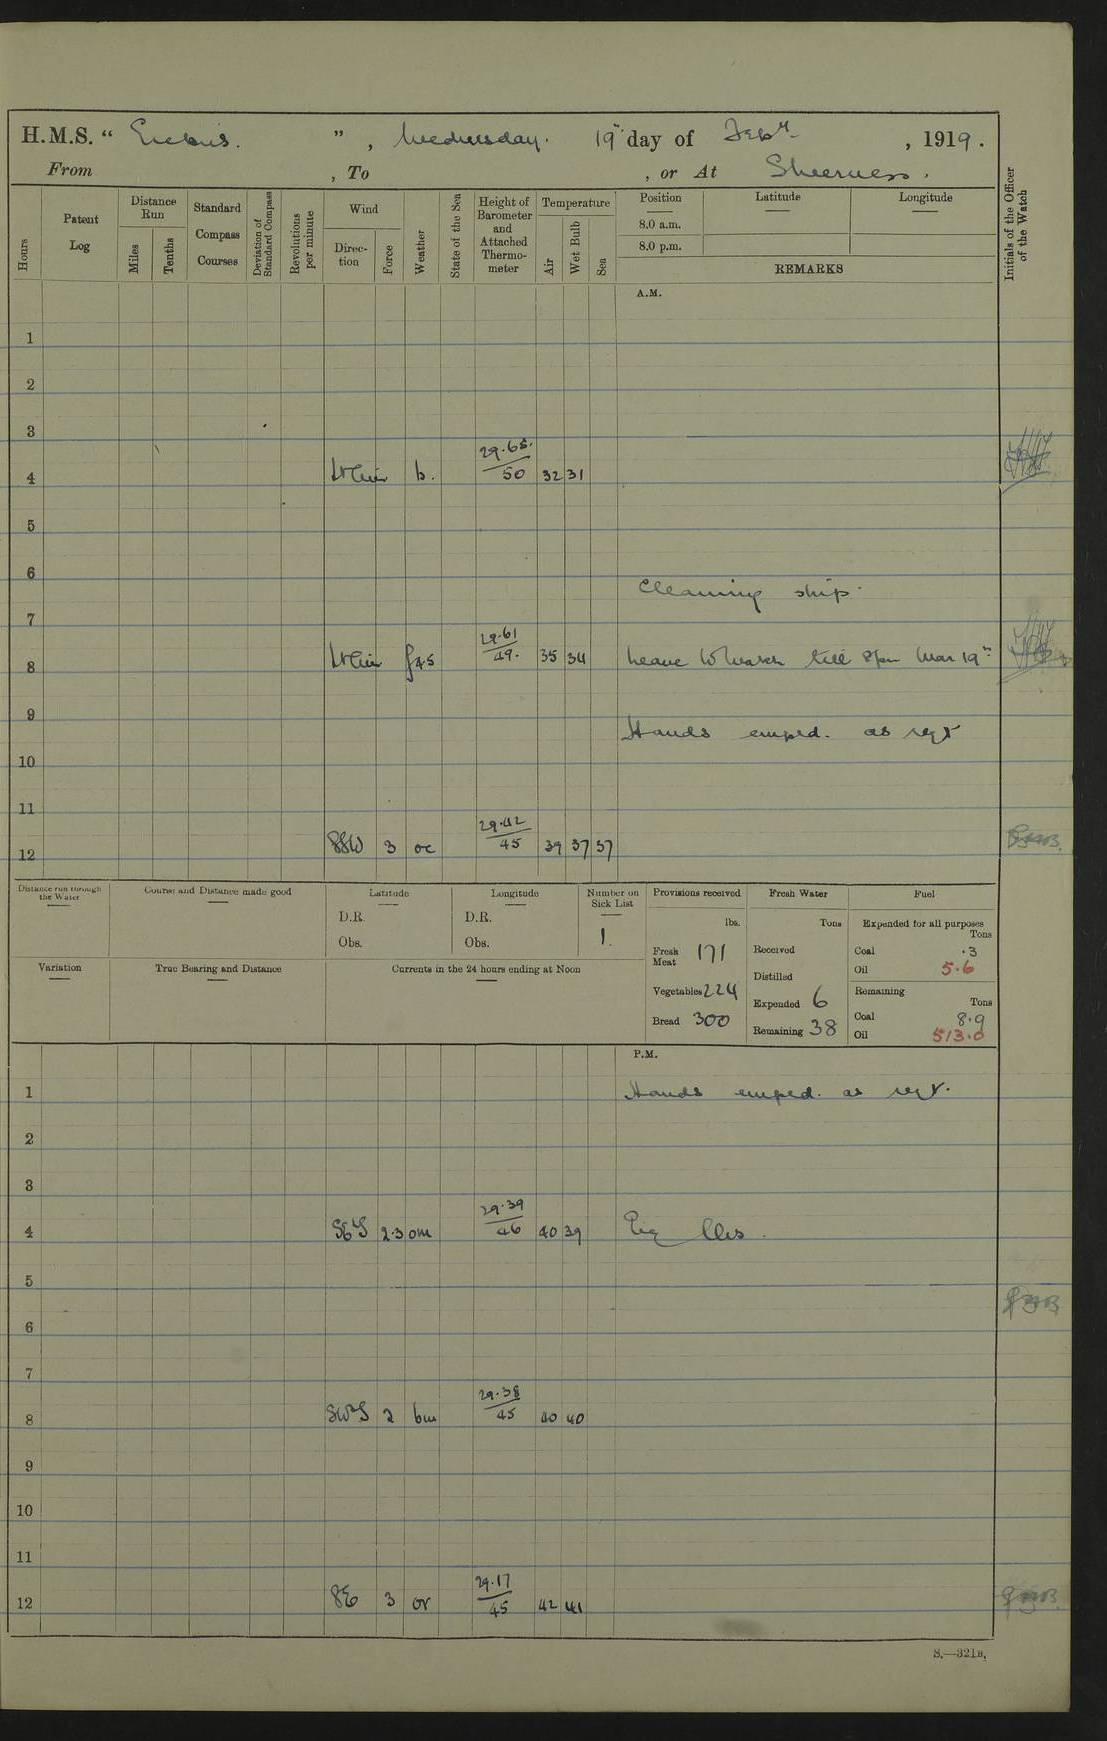 H.M.S. " Erebus. ", Wednesday. 19th day of Feby, 1919.
From , To , or At Sheerness.
Hours
Patent Log
Distance Run
Miles
Tenths
Standard Compass Courses
Deviation of Standard Compass
Revolutions per minute
Wind
Direction
Force
Weather
State of the Sea
Height of Barometer and Attached Thermometer
Temperature
Air
Wet Bulb
Sea
Position
8.0 a.m.
8.0 p.m.
Latitude
Longitude
REMARKS
Initials of the Officer of the Watch
A.M.
1
2
3
4 Lt Air b. 29.65. 50 32 31
5
6
Cleaning ship.
7
8 Lt Air 29.61 49. 35 34 Leave to Watch till Mar 19th
9
Hands empd. as reqd
10
11
12 SSW 3 oc 29.42 45 39 37 37
Distance run through the Water
Course and Distance made good
Latitude
D.R.
Obs.
Longitude
D.R.
Obs.
Number on Sick List
1.
Variation
True Bearing and Distance
Currents in the 24 hours ending at Noon
Provisions received
lbs.
Fresh Meat 171
Vegetables 224
Bread 300
Fresh Water
Tons
Received
Distilled
Expended 6
Remaining 38
Fuel
Expended for all purposes
Tons
Coal .3
Oil 5.6
Remaining
Tons
Coal 8.9
Oil 513.0
P.M.
1 Hands empd. as reqd.
2
3
4 SbyS 2.3 om 29.39 46 40 39
5
6
7
8 SWS 2 bm 29.38 45 40 40
9
10
11
12 SE 3 or 29.17 45 42 41
S.—321B.